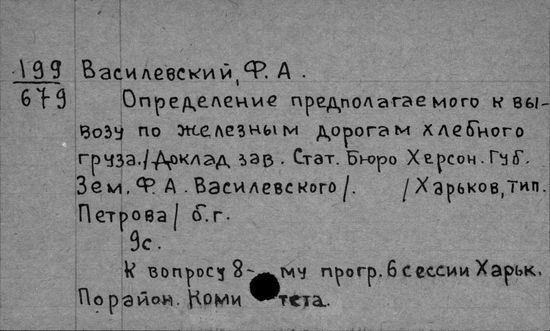 199
679
Василевский, Ф. А.
Определение предполагаемого к вы-
возу по железным дорогам хлебного
груза./Доклад зав. Стат. Бюро Херсон. Губ.
Зем. Ф. А. Василевского/. /Харьков, тип.
Петрова/ б.г.
9с.
К вопросу 8-му прогр. 6 сессии Харьк.
Порайон. Комитета.